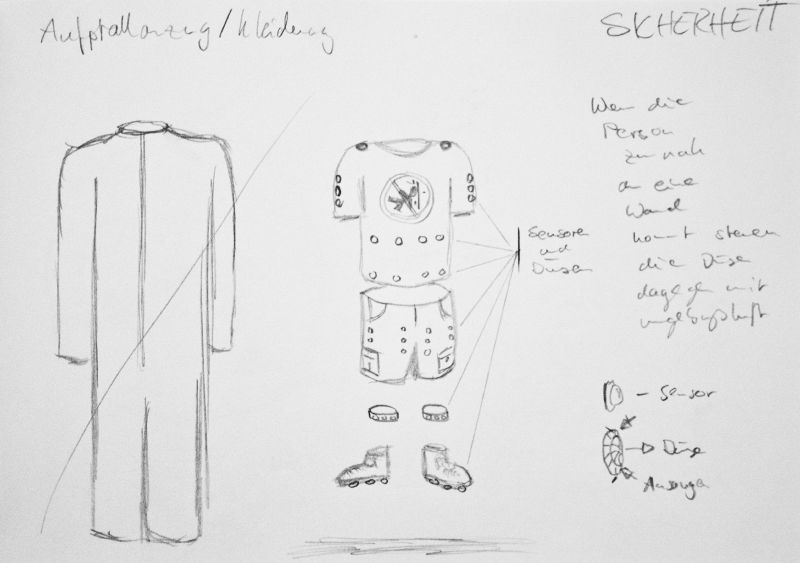 Aufprallanzug/Kleidung
SICHERHEIT
Wenn die
Person
zu nah
an eine
Wand
kommt steuern
die Düse
dagegen mit
umgebungsluft
Sensoren
und
Düsen
- Sensor
Düse
Ansaugen